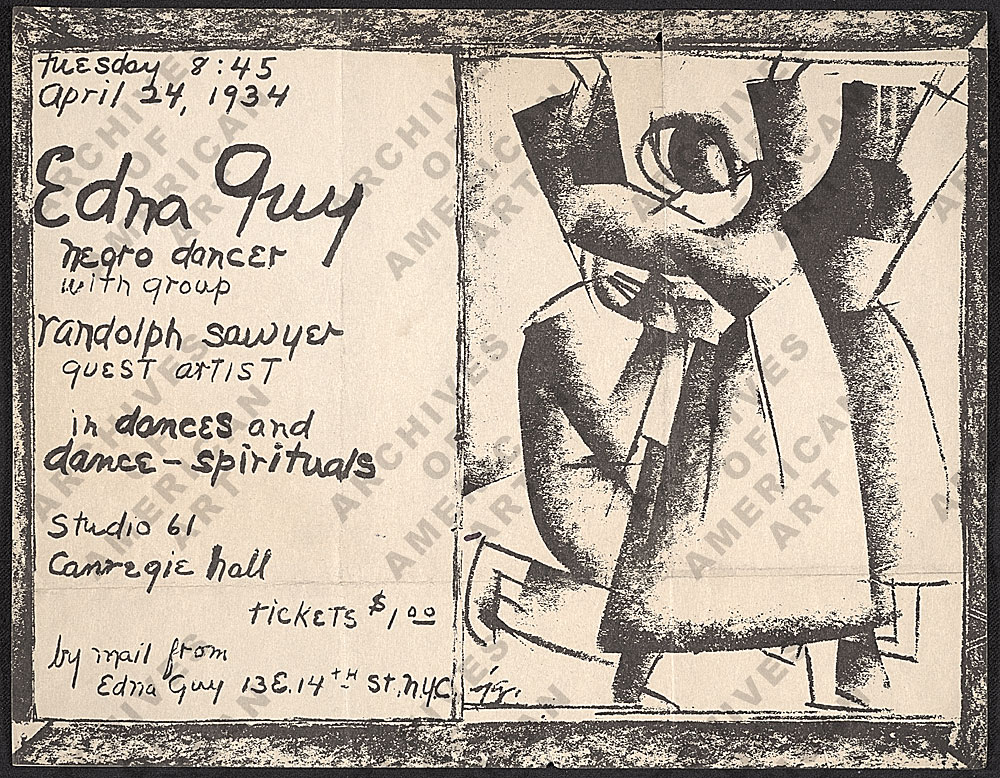 tuesday 8:45
april 24, 1934
Edna Guy
negro dancer
with group
randolph sawyer
guest artist
in dances and
dance-spirituals
Studio 61
Carnegie hall
tickets $1.00
by mail from
Edna Guy 13 E. 14TH St, N.Y.C.
ARCHIVES
OF
AMERICAN
ART
ARCHIVES
OF
AMERICAN
ART
ARCHIVES
OF
AMERICAN
ART
ARCHIVES
OF
AMERICAN
ART